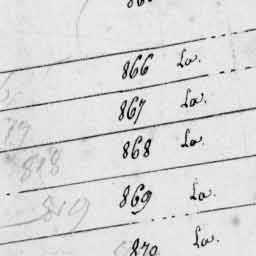 866 La.
867 La.
868 La.
818
869 La.
819
870 La.